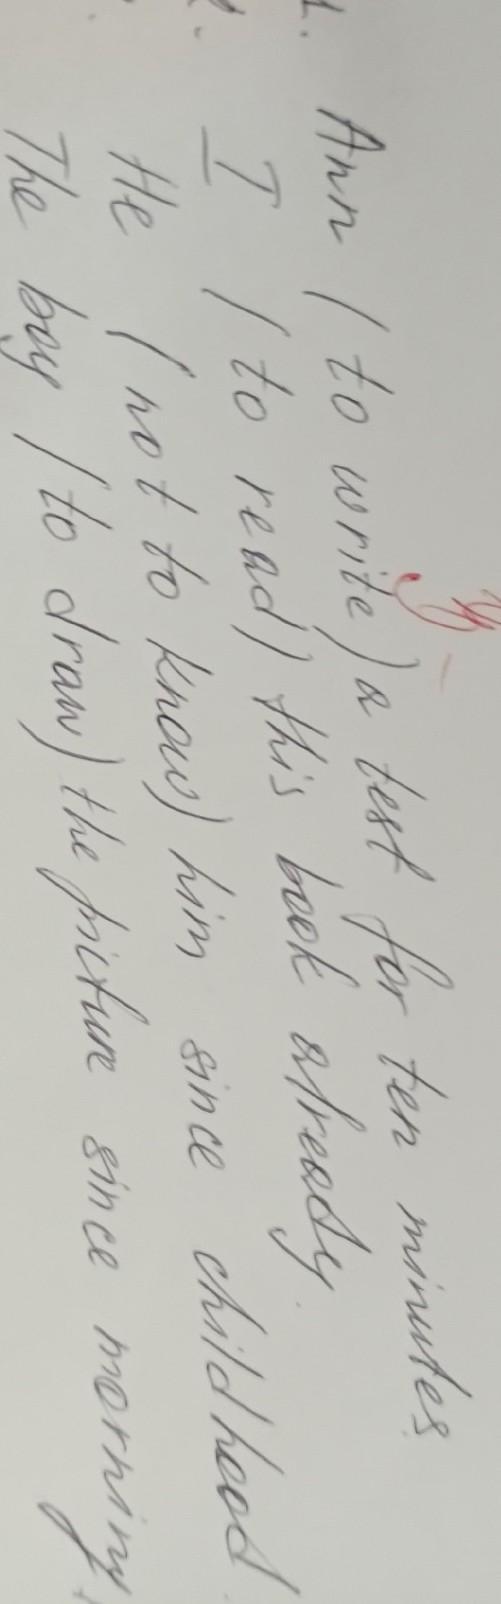 1. Ann (to write) a test for ten minutes.
I (to read) this book already.
He (not to know) him since childhood.
The boy (to draw) the picture since morning.